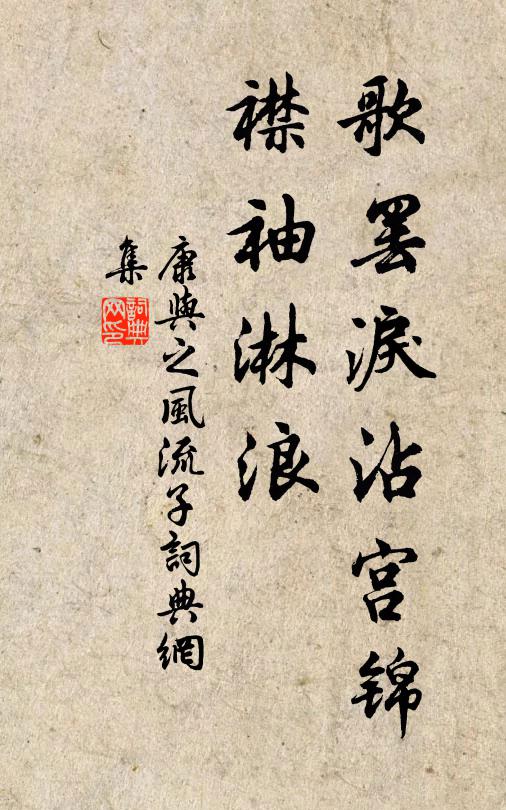 歌罢淚沾宫锦
襟袖淋浪
康與之風流子詞典網
集
詞典网印